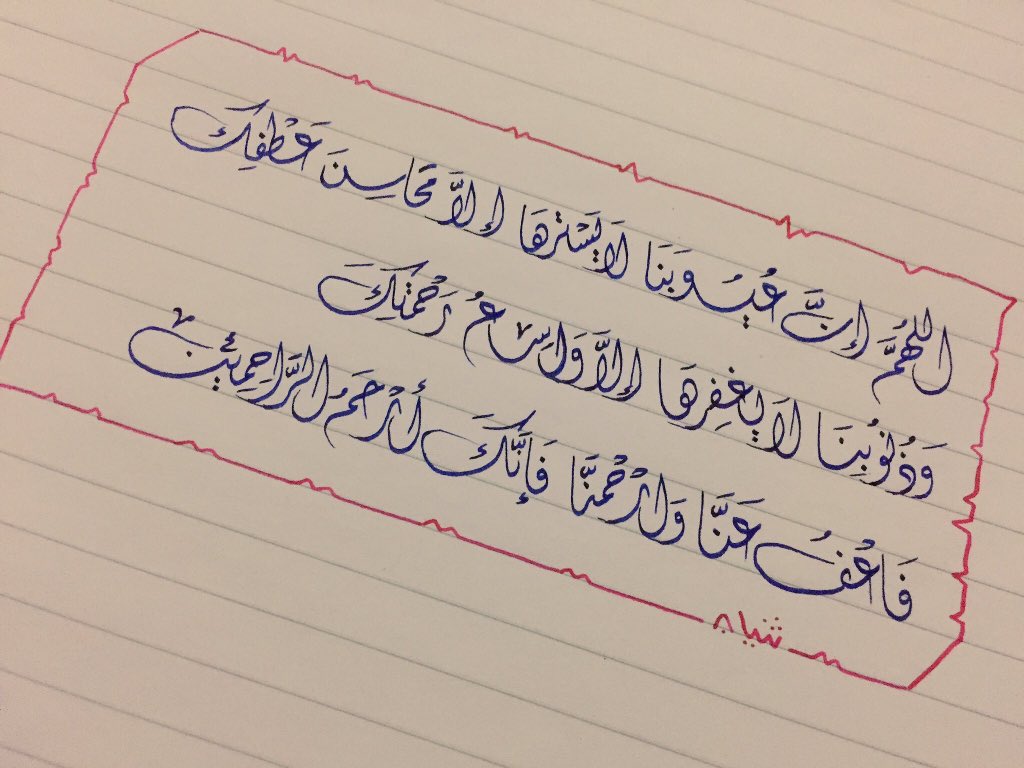 اللهُمَّ إِنَّ عُيُوبَنَا لَا يَسْتُرُهَا إِلَّا مَحَاسِنَ عَطْفِكَ
وَذُنُوبَنَا لَا يَغْفِرُهَا إِلَّا وَاسِعُ رَحْمَتِكَ
فَاعْفُ عَنَّا وَارْحَمْنَا فَإِنَّكَ أَرْحَمُ الرَّاحِمِيْنَ